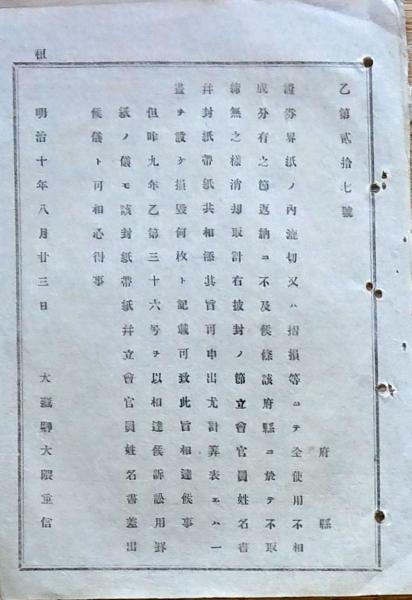 乙第貳拾七號
府縣
證券界紙ノ內流切又ハ摺損等ニテ全使用不相
成分有之節返納ニ不及候條該府縣ニ於テ不取
締無之樣消却取計右披封ノ節立會官員姓名書
幷封紙帶紙共相添其旨可申出尤計算表エハ一
畫ヲ設ケ損毀何枚ト記載可致此旨相達候事
但昨九年乙第三十六号ヲ以相達候訴訟用罫
紙ノ儀モ該封紙帶紙幷立會官員姓名書差出
候儀ト可相心得事
明治十年八月廿三日 大藏卿大隈重信
租